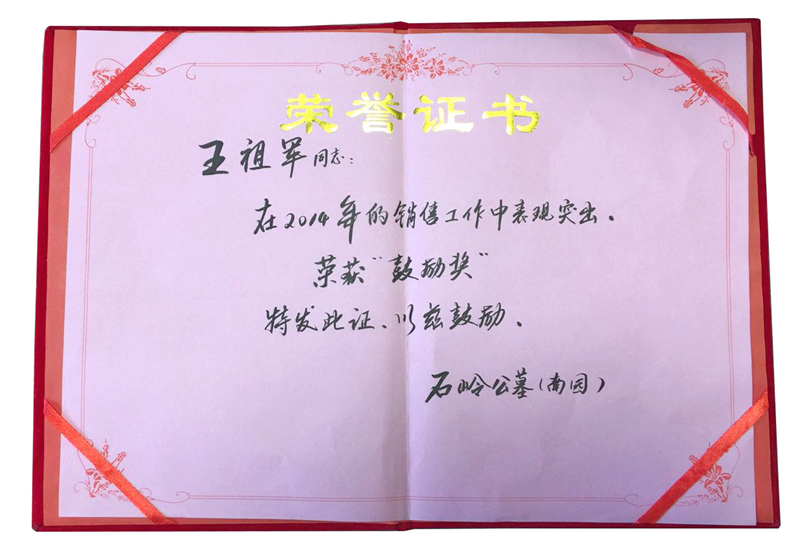 荣誉证书
王祖军同志：
在2014年的销售工作中表现突出.
荣获"鼓励奖"
特发此证、以兹鼓励.
石岭公墓(南园)